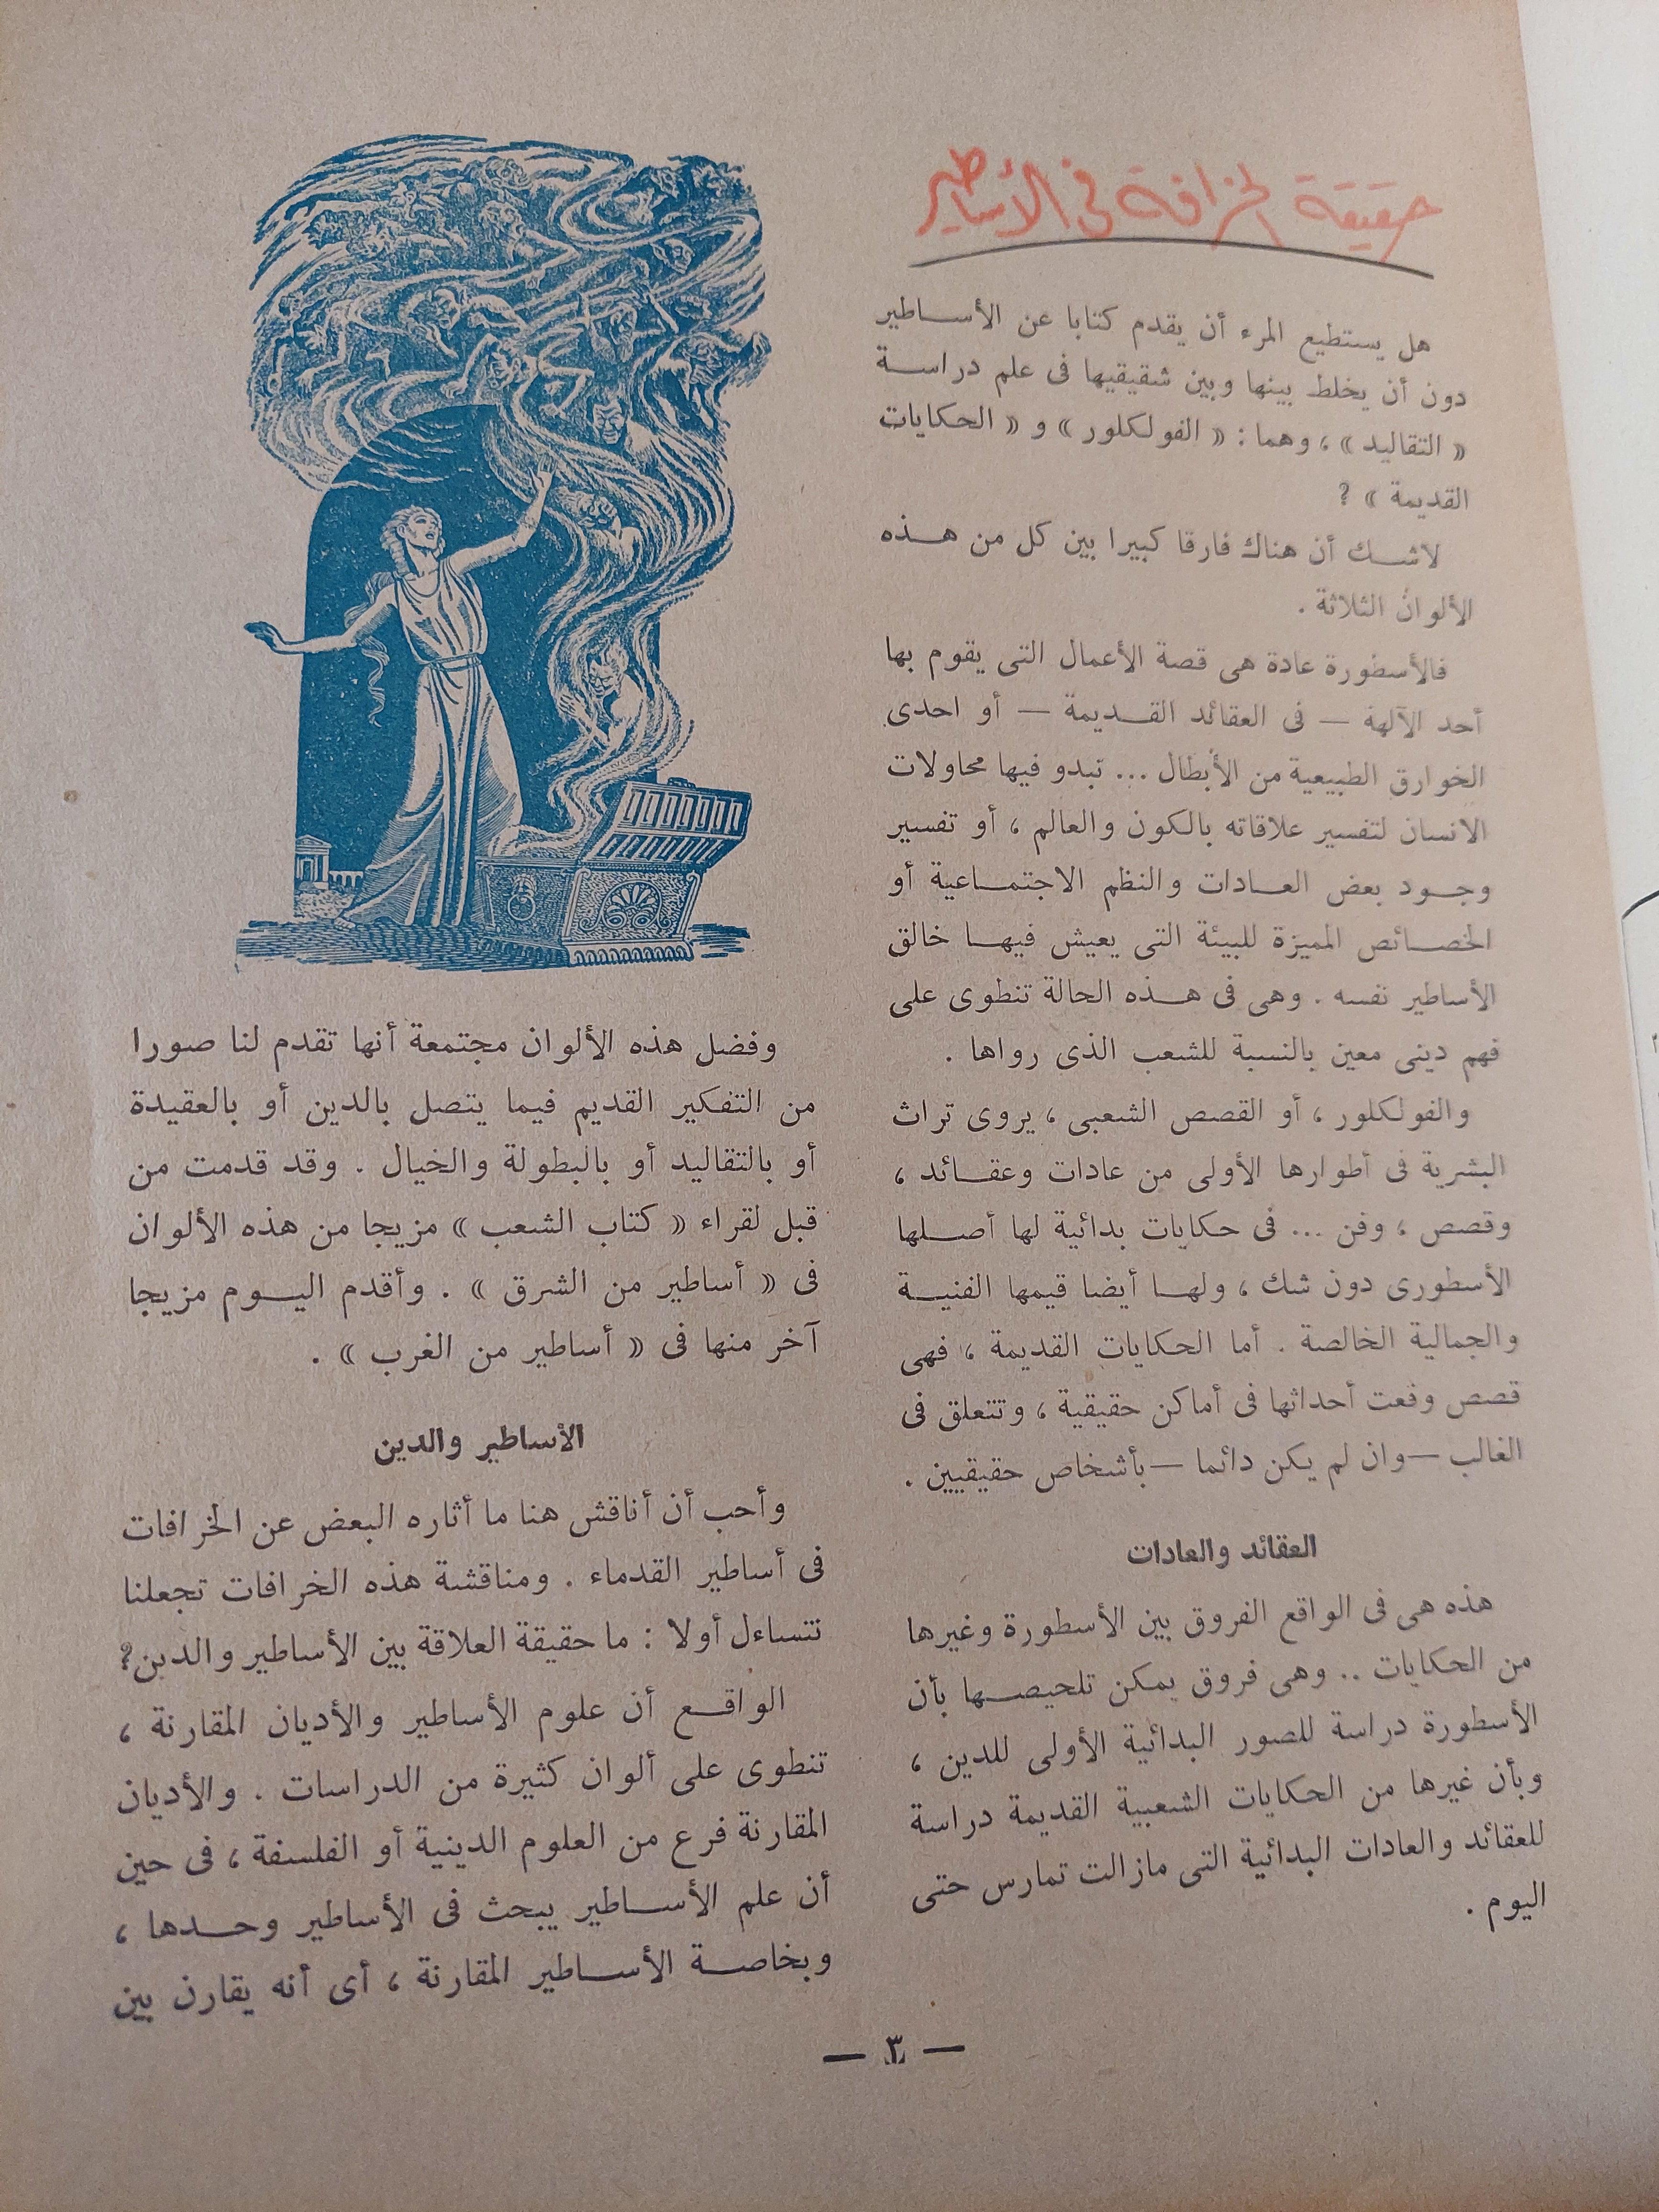 حقيقة الخرافة في الأساطير
هل يستطيع المرء أن يقدم كتابا عن الأساطير
دون أن يخلط بينها وبين شقيقيها فى علم دراسة
« التقاليد » ، وهما : « الفولكلور » و « الحكايات
القديمة » ؟
لاشك أن هناك فارقا كبيرا بين كل من هذه
الألوان الثلاثة .
فالأسطورة عادة هى قصة الأعمال التى يقوم بها
أحد الآلهة — فى العقائد القديمة — أو احدى
الخوارق الطبيعية من الأبطال ... تبدو فيها محاولات
الانسان لتفسير علاقاته بالكون والعالم ، أو تفسير
وجود بعض العادات والنظم الاجتماعية أو
الخصائص المميزة للبيئة التى يعيش فيها خالق
الأساطير نفسه . وهى فى هذه الحالة تنطوى على
فهم دينى معين بالنسبة للشعب الذى رواها .
والفولكلور ، أو القصص الشعبى ، يروى تراث
البشرية فى أطوارها الأولى من عادات وعقائد ،
وقصص ، وفن ... فى حكايات بدائية لها أصلها
الأسطورى دون شك ، ولها أيضا قيمها الفنية
والجمالية الخالصة . أما الحكايات القديمة ، فهى
قصص وقعت أحداثها فى أماكن حقيقية ، وتتعلق فى
الغالب —وان لم يكن دائما —بأشخاص حقيقيين .
العقائد والعادات
هذه هى فى الواقع الفروق بين الأسطورة وغيرها
من الحكايات .. وهى فروق يمكن تلخيصها بأن
الأسطورة دراسة للصور البدائية الأولى للدين ،
وبأن غيرها من الحكايات الشعبية القديمة دراسة
للعقائد والعادات البدائية التى مازالت تمارس حتى
اليوم .
وفضل هذه الألوان مجتمعة أنها تقدم لنا صورا
من التفكير القديم فيما يتصل بالدين أو بالعقيدة
أو بالتقاليد أو بالبطولة والخيال . وقد قدمت من
قبل لقراء « كتاب الشعب » مزيجا من هذه الألوان
فى « أساطير من الشرق » . وأقدم اليوم مزيجا
آخر منها فى « أساطير من الغرب » .
الأساطير والدين
وأحب أن أناقش هنا ما أثاره البعض عن الخرافات
فى أساطير القدماء . ومناقشة هذه الخرافات تجعلنا
نتساءل أولا : ما حقيقة العلاقة بين الأساطير والدين؟
الواقع أن علوم الأساطير والأديان المقارنة ،
تنطوى على ألوان كثيرة من الدراسات . والأديان
المقارنة فرع من العلوم الدينية أو الفلسفة ، فى حين
أن علم الأساطير يبحث فى الأساطير وحدها ،
وبخاصة الأساطير المقارنة ، أى أنه يقارن بين
— ٣ —